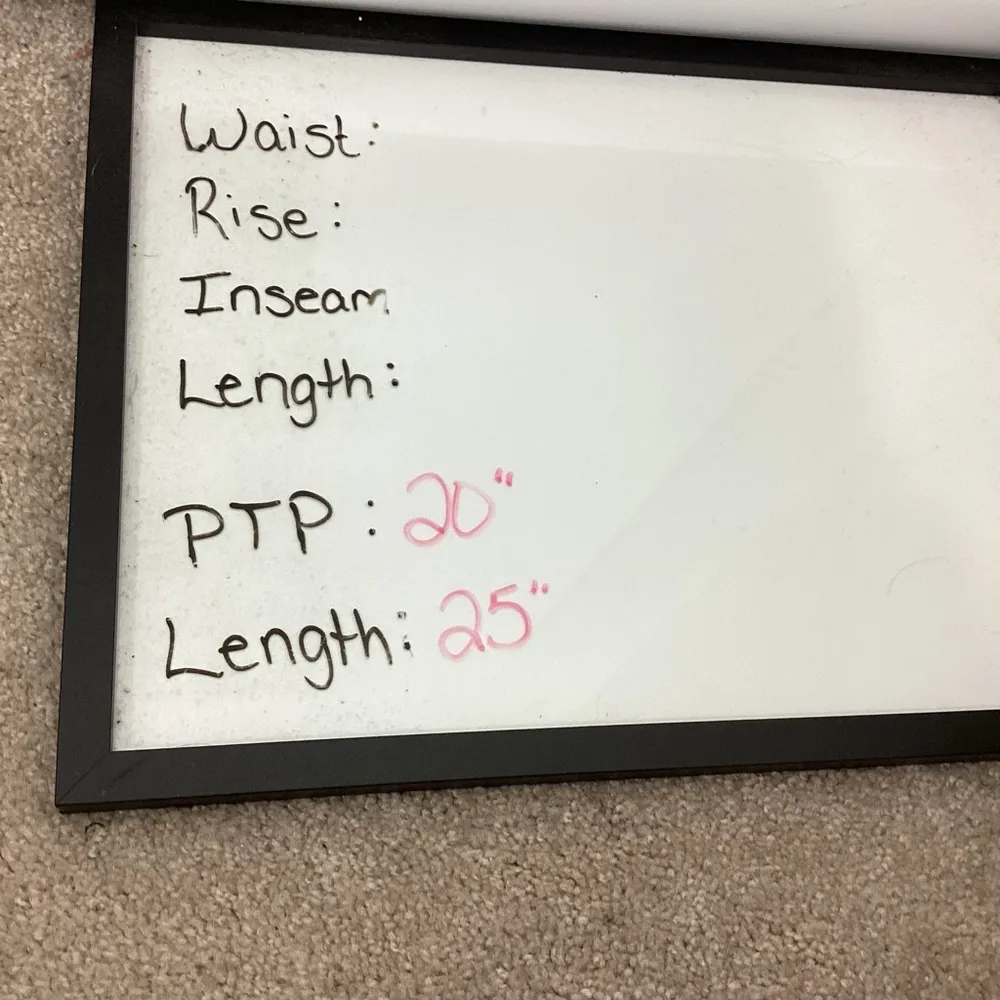 Waist:
Rise:
Inseam
Length:
PTP: 20"
Length: 25"